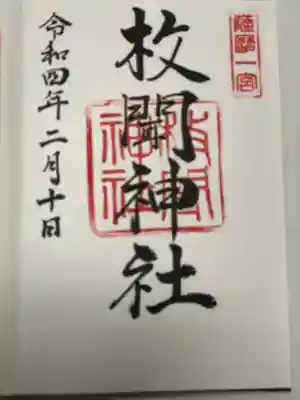 薩摩一宮
枚聞神社
枚聞神社
令和四年二月十日